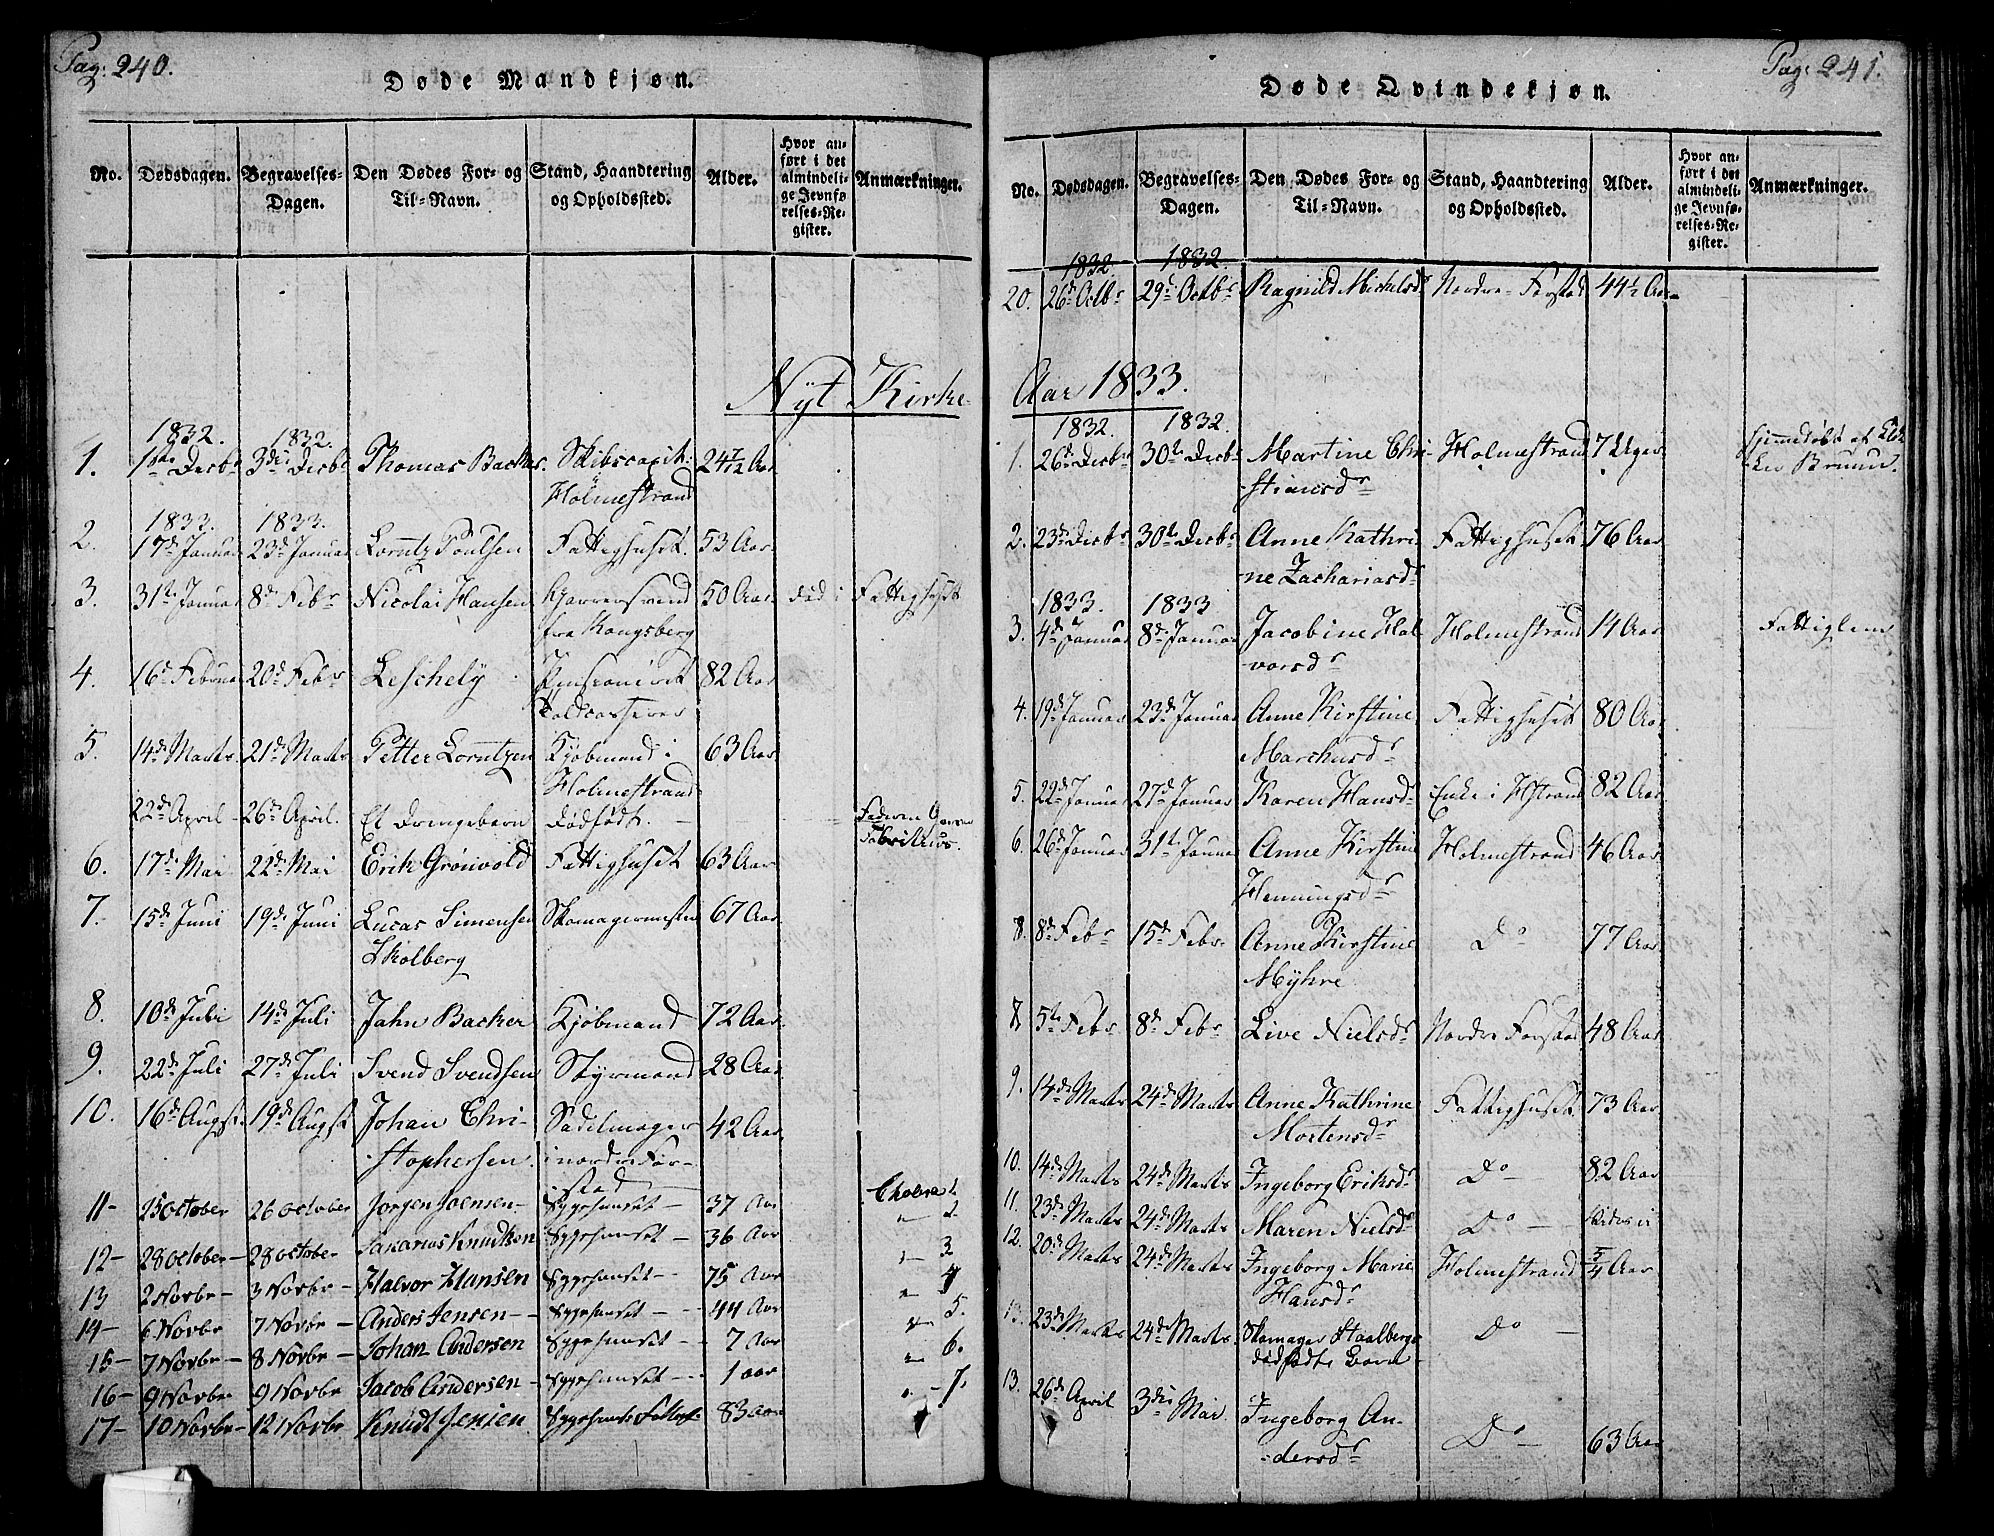 Pag: 240.
Døde Mandkjøn.
No. | Dødsdagen. | Begravelses-Dagen. | Den Dødes For- og Til-Navn. | Stand, Haandtering og Opholdssted. | Alder. | Hvor anført i det almindelige Jevnførelses-Register. | Anmærkninger.
Nyt Kirke-
1832. 1832.
1. 1ste Decbr 3die Decbr Thomas Backer Skibscapit: 24 7/12 Aar
Holmestrand
1833. 1833.
2. 17de Januar 23de Januar Lorntz Poulsen Fattighuset. 53 Aar
3. 31te Januar 8de Febr Nicolai Hansen fra Kongsberg 50 Aar død i Fattighuset
4. 16de Februar 20de Febr Leschely Pensioneret Toldcasserer 82 Aar
5. 14de Marts 21de Marts Petter Lorntzen Kjøbmand i Holmestrand 63 Aar
22de April 26de April. Et Drengebarn Dødfødt. Faderen Fabritius.
6. 17de Mai 22de Mai Erik Grönvold Fattighuset 63 Aar
7. 15de Juni 19de Juni Lucas Simensen Skolberg Skomagermester 67 Aar
8. 10de Juli 14de Juli Jahn Backer Kjøbmand 72 Aar
9. 22de Juli 27de Juli Svend Svendsen Styrmand 28 Aar
10. 16de Augst. 19de Augst Johan Christophersen Sadelmager i nordre Forstad 42 Aar
11- 25 october 26 october Jørgen Joensen- Sygehuuset- 37 Aar Cholera 1
12- 28 october- 28 october Sacarias Knudsen Sygehuuset- 36 Aar - 2
13 2 Novbr- 3 Novbr- Halvor Hansen Sygehuuset- 75 Aar - 3
14- 6 Novbr 7 Novbr- Anders Jensen- Sygehuuset- 44 Aar - 4
15- 7 Novbr- 8 Novbr- Johan Andersen Sygehuuset- 7 Aar - 5.
16- 9 Novbr- 9 Novbr Jacob Andersen- Sygehuuset- 1 aar - 6.
17- 10 Novbr- 12 Novbr Knudt Jensen 83 aar - 7.
Pag: 241.
Døde Qvindekjøn.
No. | Dødsdagen. | Begravelses-Dagen. | Den Dødes For- og Til-Navn. | Stand, Haandtering og Opholdssted. | Alder. | Hvor anført i det almindelige Jevnførelses-Register. | Anmærkninger.
1832. 1832.
20. 26de Octbr 29de Octbr Ragnild Michelsdr Nordre Forstad 44½ Aar
Aar 1833.
1832. 1832.
1. 26de Decbr 30te Decbr Martine Christiansdr Holmestrand 7 Uger Hjemmedøbt af Bruun.
2. 23de Decbr 30te Decbr Anne Kathrine Zachariasdr Fattighuset 76 Aar
1833. 1833
3. 4de Januar 8de Januar Jacobine Halvorsdr Holmestrand 14 Aar Fattiglem
4. 19de Januar 23de Januar Anne Kirstine Marchusdr Fattighuset 80 Aar
5. 22de Januar 27de Januar Karen Hansdr Enke i Hstrand 82 Aar
6. 26de Januar 31te Januar Anne Kirstine Henningsdr Holmestrand 46 Aar
8. 8de Febr 15de Febr. Anne Kirstine Myhre Do 77 Aar
7. 5te Febr 8de Febr Live Nielsdr Nordre Forstad 48 Aar
9. 14de Marts 24de Marts Anne Kathrine Mortensdr Fattighuset 73 Aar
10. 14de Marts 24de Marts Ingeborg Eriksdr Do - 82 Aar
11. 23de Marts 24de Marts Maren Nielsdr Do -
12. 20de Marts 24de Marts Ingeborg Marie Hansdr Holmestrand ¾ Aar
13. 23de Marts 24de Marts Skomager Staalbergs dødfødte Barn Do -
13. 26de April 3die Mai Ingeborg Andersdr Do - 63 Aar